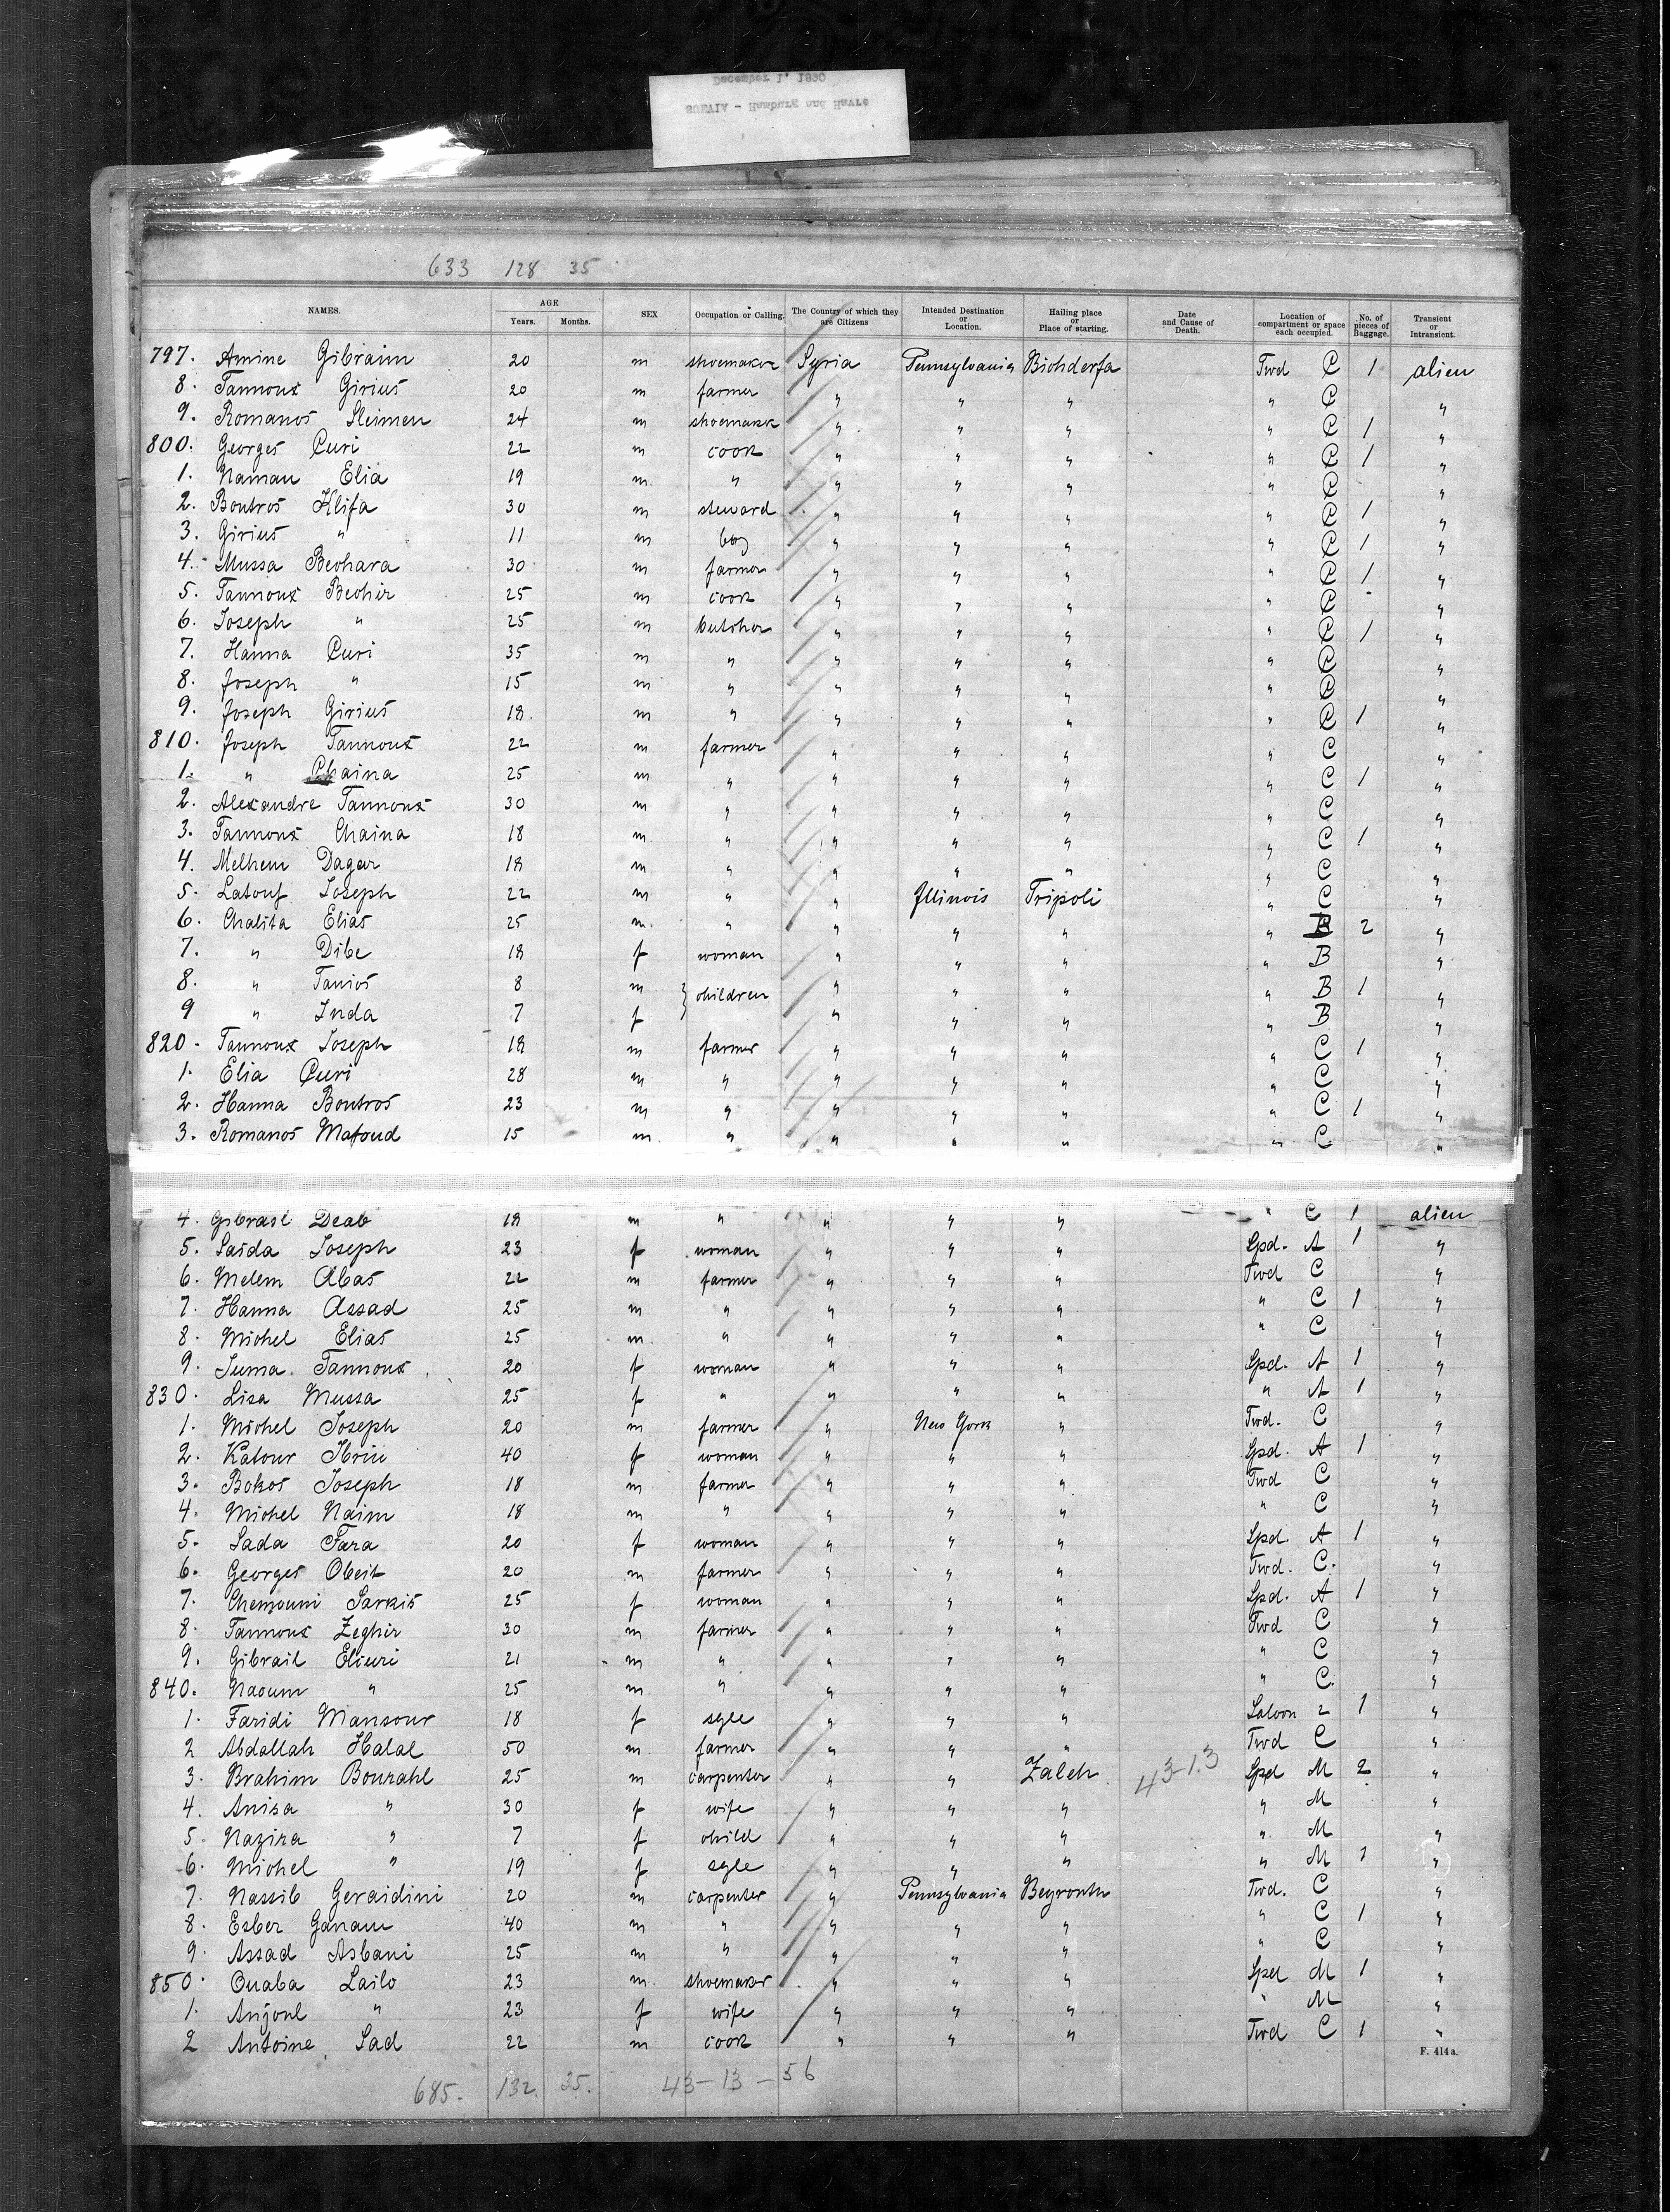 December 1' 1890
SUEVIA - Hamburg and Havre
633 128 35
NAMES. AGE Years. Months. SEX Occupation or Calling. The Country of which they are Citizens Intended Destination or Location. Hailing place or Place of starting. Date and Cause of Death. Location of compartment or space each occupied. No. of pieces of Baggage. Transient or Intransient.
797. Amine Gibraim 20 m shoemaker Syria Pennsylvania Bichderfa Twd C 1 alien
8. Tannous Girius 20 m farmer " " " " C "
9. Romanos Sleimen 24 m shoemaker " " " " C 1 "
800. Georges Curi 22 m cook " " " " C 1 "
1. Naman Elia 19 m " " " " " C "
2. Boutros Klifa 30 m steward " " " " C 1 "
3. Girius " 11 m boy " " " " C 1 "
4. Mussa Bechara 30 m farmer " " " " C 1 "
5. Tannous Bechir 25 m cook " " " " C "
6. Joseph " 25 m butcher " " " " C 1 "
7. Hanna Curi 35 m " " " " " C "
8. Joseph " 15 m " " " " " C "
9. Joseph Girius 18 m " " " " " C 1 "
810. Joseph Tannous 22 m farmer " " " " C "
1. " Chaina 25 m " " " " " C 1 "
2. Alexandre Tannous 30 m " " " " " C "
3. Tannous Chaina 18 m " " " " " C 1 "
4. Melhem Dager 18 m " " " " " C "
5. Latouf Joseph 22 m " " Illinois Tripoli " C "
6. Chalita Elias 25 m " " " " " B 2 "
7. " Dibe 18 f woman " " " " B "
8. " Tanios 8 m } children " " " " B 1 "
9 " Inda 7 f " " " " B "
820. Tannous Joseph 18 m farmer " " " " C 1 "
1. Elia Curi 28 m " " " " " C "
2. Hanna Boutros 23 m " " " " " C 1 "
3. Romanos Mafoud 15 m " " " " " C "
4. Gibrael Deab 18 m " " " " " C 1 alien
5. Saida Joseph 23 f woman " " " Spd. A 1 "
6. Melem Abas 22 m farmer " " " Twd C "
7. Hanna Assad 25 m " " " " " C 1 "
8. Michel Elias 25 m " " " " " C "
9. Juma Tannous 20 f woman " " " Spd. A 1 "
830. Lisa Mussa 25 f " " " " " A 1 "
1. Michel Joseph 20 m farmer " New York " Twd. C "
2. Katour 40 f woman " " " Spd. A 1 "
3. Bokos Joseph 18 m farmer " " " Twd C "
4. Michel Naim 18 m " " " " " C "
5. Sada Fara 20 f woman " " " Spd. A 1 "
6. Georges Obeit 20 m farmer " " " Twd. C. "
7. Chemouni Sarkis 25 f woman " " " Spd. A 1 "
8. Tannous Zeghir 30 m farmer " " " Twd C "
9. Gibrail Elcuri 21 m " " " " " C "
840. Naoum " 25 m " " " " " C. "
1. Faridi Mansour 18 f sgle " " " Saloon 2 1 "
2 Abdallah Halal 50 m farmer " " " Twd C "
3. Brahim Bourahl 25 m carpenter " " Zaleh 43-13 Spd M 2 "
4. Anisa " 30 f wife " " " " M "
5. Nazira " 7 f child " " " " M "
6. Michel " 19 f sgle " " " " M 1 "
7. Nassib Geraidini 20 m carpenter " Pennsylvania Beyrouth Twd. C "
8. Esber Ganam 40 m " " " " " C 1 "
9. Assad Asbani 25 m " " " " " C "
850. Ouaba Lailo 23 m shoemaker " " " Spd M 1 "
1. Anjoul " 23 f wife " " " " M "
2 Antoine Sad 22 m cook " " " Twd C 1 "
F. 414a.
685. 132. 35. 43-13-56